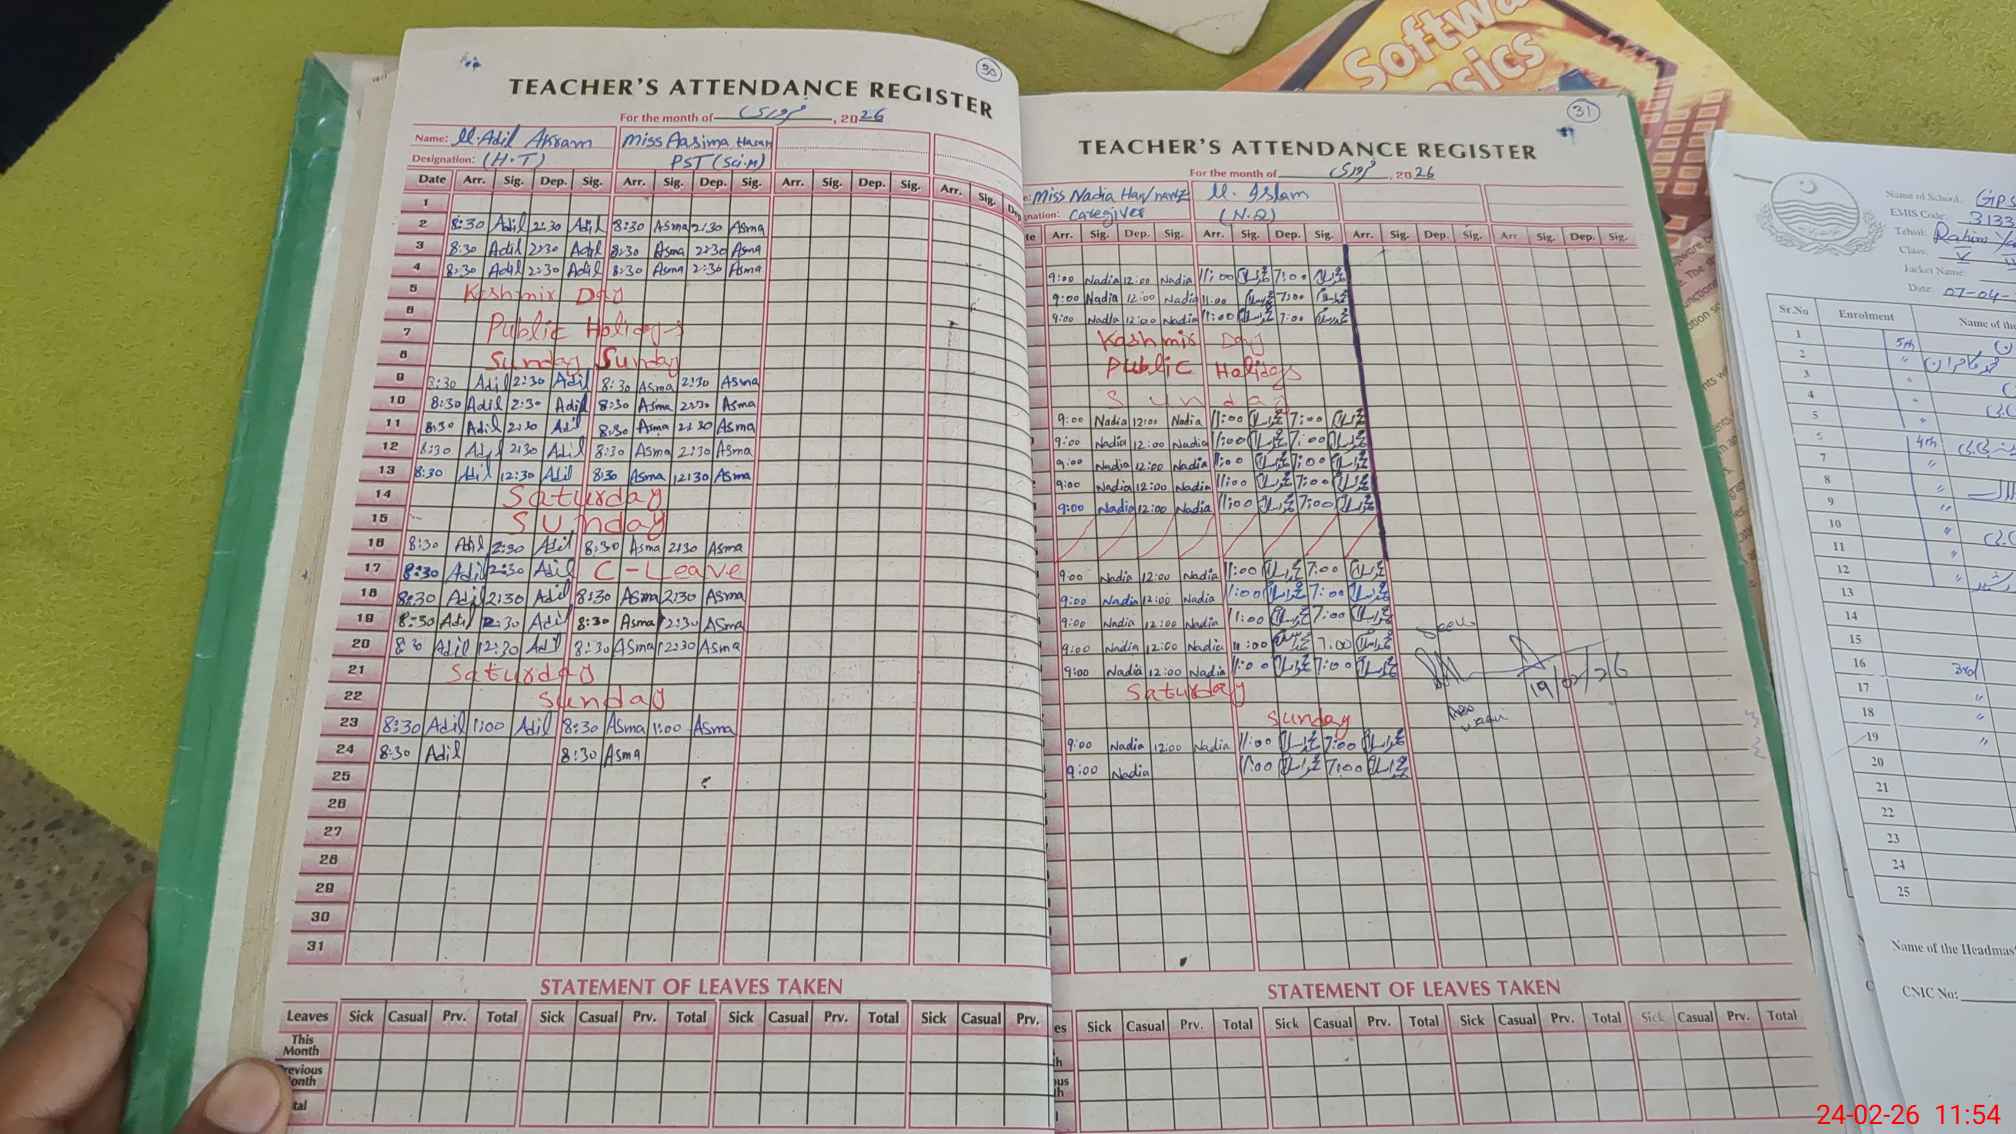 Software
Basics
30
TEACHER'S ATTENDANCE REGISTER
For the month of فروری, 2026
Name: M. Adil Akram Miss Aasima Hasan
Designation: (H.T) PST (Sci.M)
Date Arr. Sig. Dep. Sig. Arr. Sig. Dep. Sig. Arr. Sig. Dep. Sig. Arr. Sig. Dep
1
2 8:30 Adil 2:30 Adil 8:30 Asma 2:30 Asma
3 8:30 Adil 2:30 Adil 8:30 Asma 2:30 Asma
4 8:30 Adil 2:30 Adil 8:30 Asma 2:30 Asma
5 Kashmir Day
6
7 Public Holidays
8 Sunday Sunday
9 8:30 Adil 2:30 Adil 8:30 Asma 2:30 Asma
10 8:30 Adil 2:30 Adil 8:30 Asma 2:30 Asma
11 8:30 Adil 2:30 Adil 8:30 Asma 2:30 Asma
12 8:30 Adil 2:30 Adil 8:30 Asma 2:30 Asma
13 8:30 Adil 12:30 Adil 8:30 Asma 12:30 Asma
14 Saturday
15 Sunday
16 8:30 Adil 2:30 Adil 8:30 Asma 2:30 Asma
17 8:30 Adil 2:30 Adil C-Leave
18 8:30 Adil 2:30 Adil 8:30 Asma 2:30 Asma
19 8:30 Adil 2:30 Adil 8:30 Asma 2:30 Asma
20 8:30 Adil 12:30 Adil 8:30 Asma 12:30 Asma
21 Saturday
22 Sunday
23 8:30 Adil 1:00 Adil 8:30 Asma 1:00 Asma
24 8:30 Adil 8:30 Asma
25
26
27
28
29
30
31
STATEMENT OF LEAVES TAKEN
Leaves Sick Casual Prv. Total Sick Casual Prv. Total Sick Casual Prv. Total Sick Casual Prv.
This Month
Previous Month
31
TEACHER'S ATTENDANCE REGISTER
For the month of فروری, 2026
Miss Nadia M. Islam
Caregiver (N.Q)
Arr. Sig. Dep. Sig. Arr. Sig. Dep. Sig. Arr. Sig. Dep. Sig. Arr. Sig. Dep. Sig.
9:00 Nadia 12:00 Nadia 11:00 7:00
9:00 Nadia 12:00 Nadia 11:00 7:00
9:00 Nadia 12:00 Nadia 11:00 7:00
Kashmir Day
Public Holidays
Sunday
9:00 Nadia 12:00 Nadia 11:00 7:00
9:00 Nadia 12:00 Nadia 11:00 7:00
9:00 Nadia 12:00 Nadia 11:00 7:00
9:00 Nadia 12:00 Nadia 11:00 7:00
9:00 Nadia 12:00 Nadia 11:00 7:00
9:00 Nadia 12:00 Nadia 11:00 7:00
9:00 Nadia 12:00 Nadia 11:00 7:00
9:00 Nadia 12:00 Nadia 11:00 7:00
9:00 Nadia 12:00 Nadia 11:00 7.00
9:00 Nadia 12:00 Nadia 11:00 7:00
Saturday
Sunday
9:00 Nadia 12:00 Nadia 11:00 7:00
9:00 Nadia 11:00 7:00
19/02/26
STATEMENT OF LEAVES TAKEN
Sick Casual Prv. Total Sick Casual Prv. Total Sick Casual Prv. Total Sick Casual Prv. Total
Name of School: GPS
EMIS Code: 3133
Tehsil: Rahim
Class: V
Jacket Name:
Date: 07-04-
Sr.No Enrolment Name of the
1 5th
2 "
3 "
4 "
5 "
6 4th
7 "
8 "
9 "
10 "
11 "
12 "
13
14
15
16 3rd
17 "
18 "
19 "
20
21
22
23
24
25
Name of the Headmas
CNIC No:
24-02-26 11:54